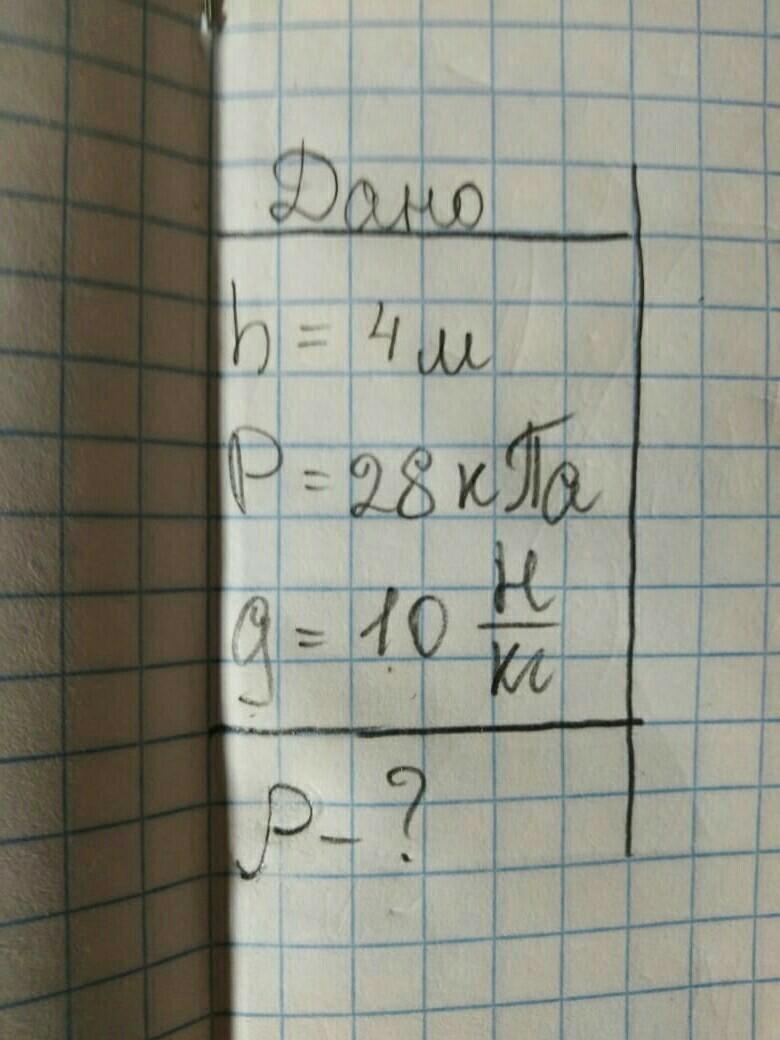 Дано
h = 4 м
P = 28 кПа
g = 10 Н/кг
ρ - ?